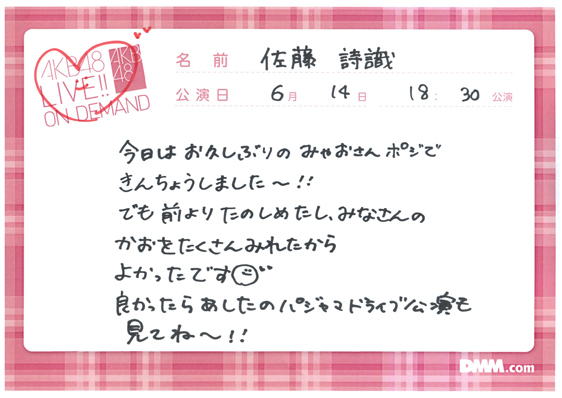 AKB48 AKB48
LIVE!!
ON DEMAND
名前 佐藤 詩識
公演日 6月 14日 18:30公演
今日は お久しぶりの みゃおさん ポジで
きんちょうしました〜!!
でも 前より たのしめたし、みなさんの
かおを たくさん みれたから
よかったです
良かったら あしたの パジャマドライブ公演も
見てね〜!!
DMM.com